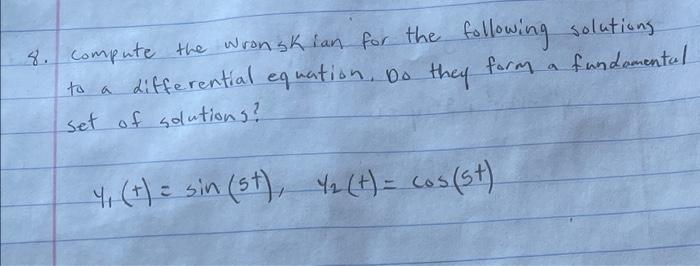 8. compute the wronskian for the following solutions
to a differential equation. Do they form a fundamental
set of solutions?
y₁(t) = sin(5t), y₂(t) = cos(5t)